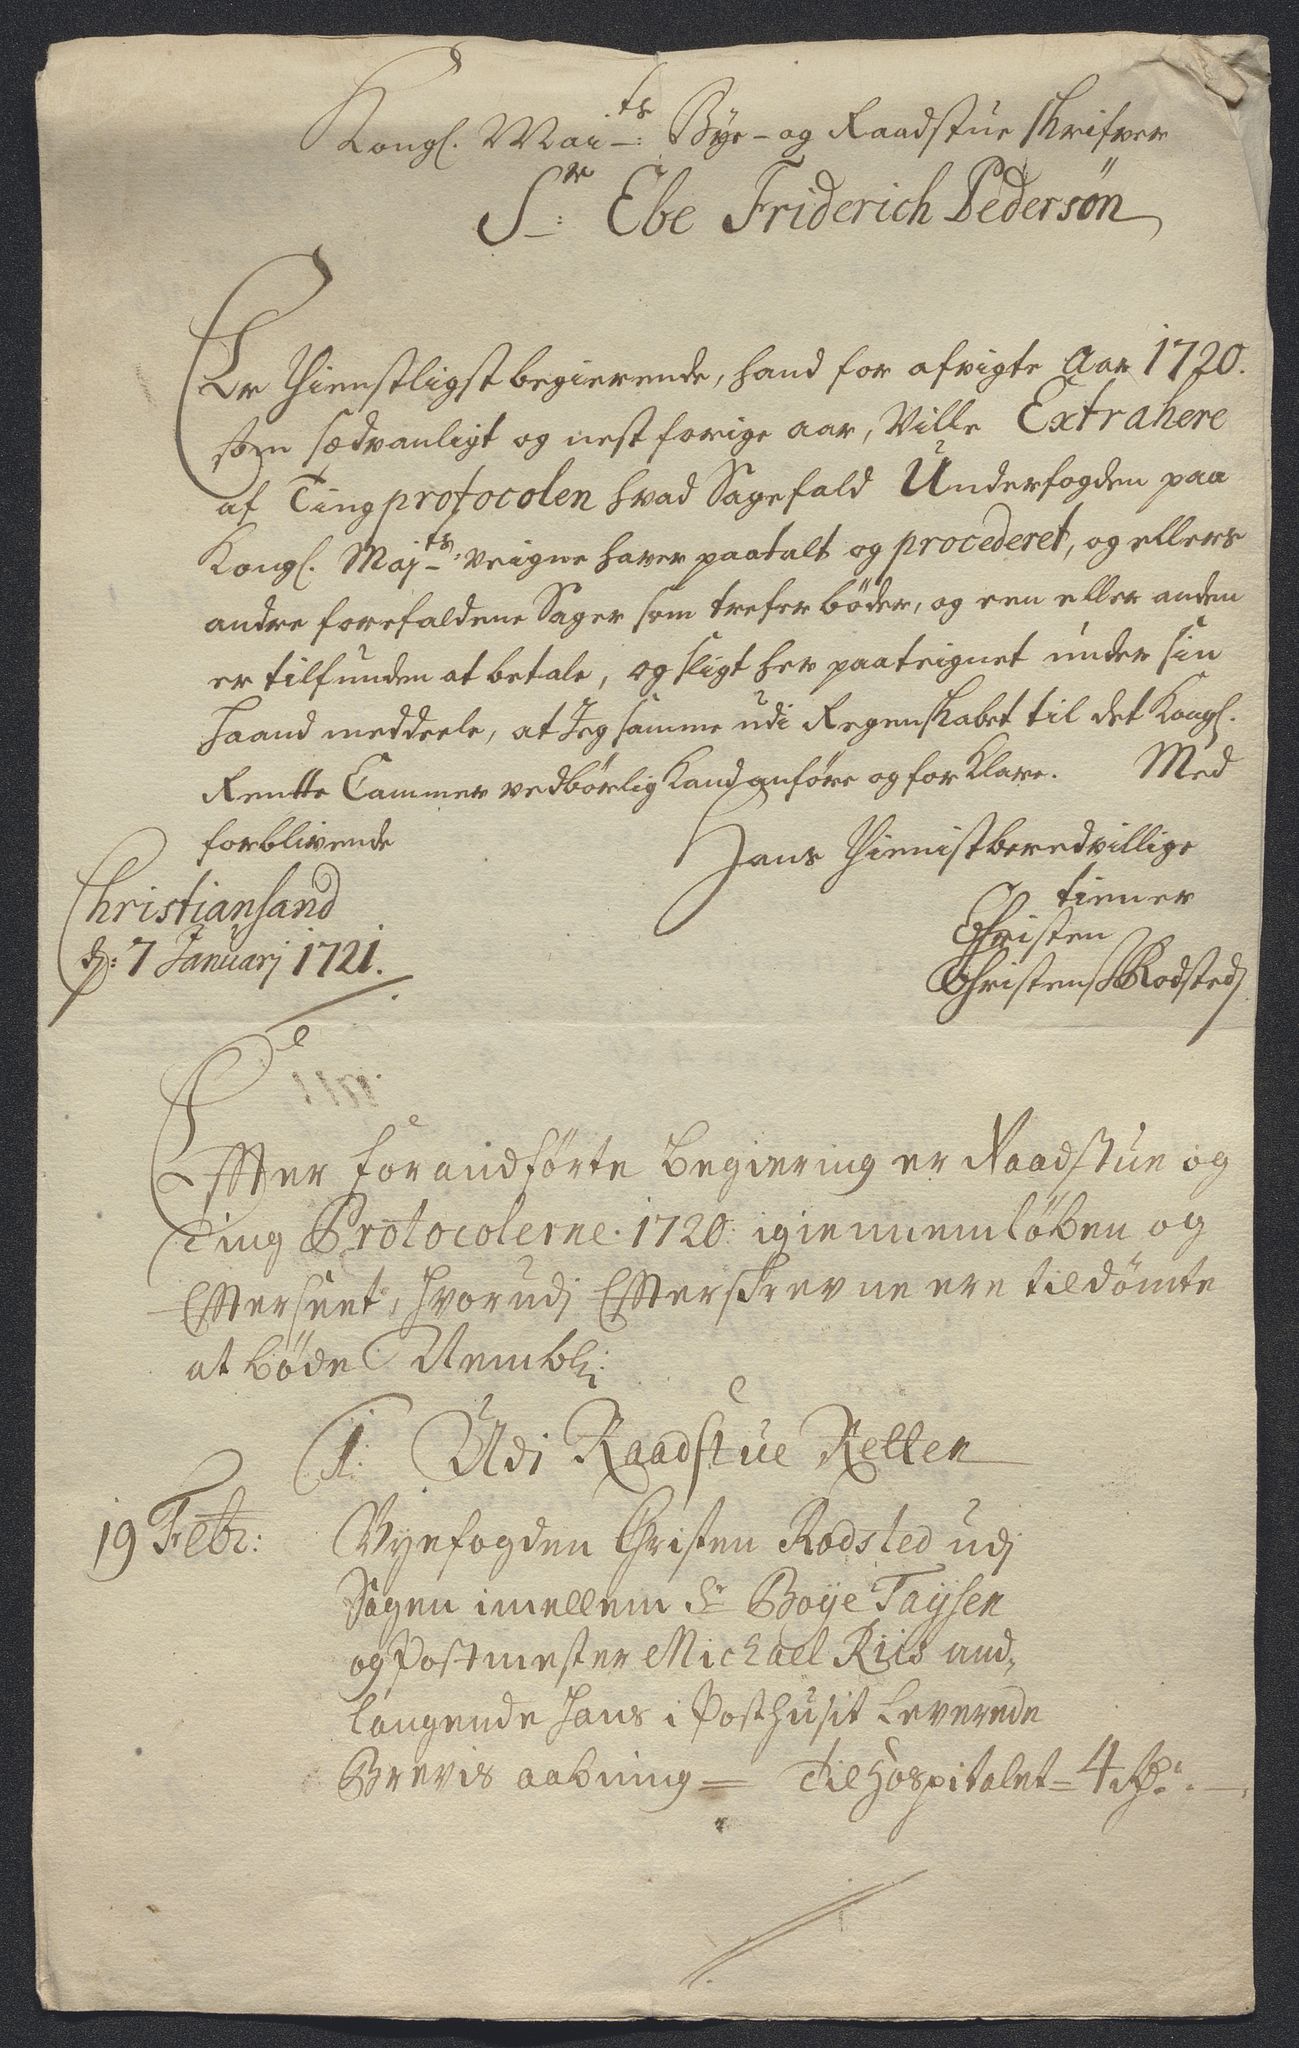 Kongl. Mai_ts: Bye- og Raadstue Skrifver
Sr: Ebe Friderich Pedersøn
Er thienstligst begierende, hand for afvigte Aar 1720.
som sædvanligt og nest forige aar, Ville Extrahere
af Tingprotocolen hvad Sagefald Underfogden paa
Kongl. Majts: Veigne haver paatalt og procederet, og ellers
andre forefaldene Sager som trefer bøder, og een eller anden
er tilfunden at betale, og sligt her paateignet under sin
Haand meddeele, at Jeg samme udi Regenskabet til det Kongl.
Rentte Cammer vedbørlig Kand anføre og for Klare. Med
forblivende Hans thienistberedvillige
tiener
Christiansand
d: 7 Januarj 1721.
Christen
Christens Rodsted
Effter forandførte begiering er Raadstue og
Ting Protocolerne 1720: igiennemløben og
Efterseet, hvorudj Effterskrevne ere tildømte
at bøde Nembl:
1. Udi Raadstue Retten
19 Febr: Byefogden Christen Rodsted udj
Sagen imellem Sr Boye Taysen
og Postmester Michael Riis and,
langende hans i Posthusit Leverede
Brevis aabning = til Hospitalet = 4 Rd: